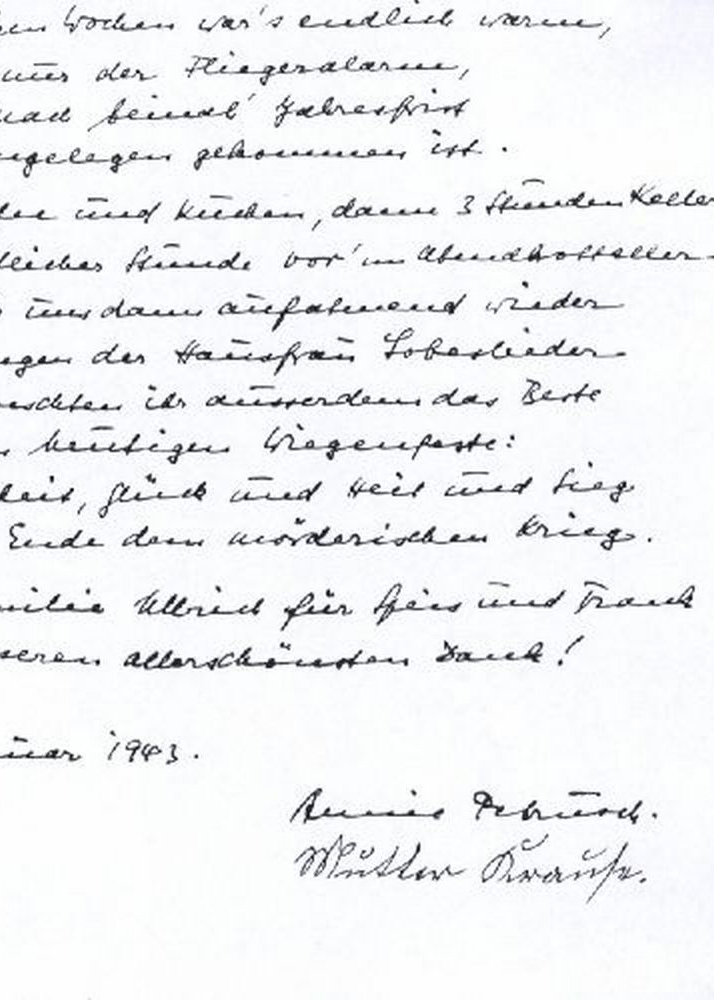 Wochen war's endlich warm,
nur der Fliegeralarm,
nach beinah' Jahresfrist
ngelegen gekommen ist.
und Kuchen, dann 3 Stunden Keller
tlicher Stunde vor'm Abendbrotteller
uns dann aufatmend wieder
ngen der Hausfrau Lobeslieder
nschten ihr ausserdem das Beste
heutigen Wiegenfeste:
heit, Glück und Heil und Sieg
Ende dem mörderischen Krieg.
milie Ullrich für Speis und Trank
nseren allerschönsten Dank!
nuar 1943.
Mutter Krause.